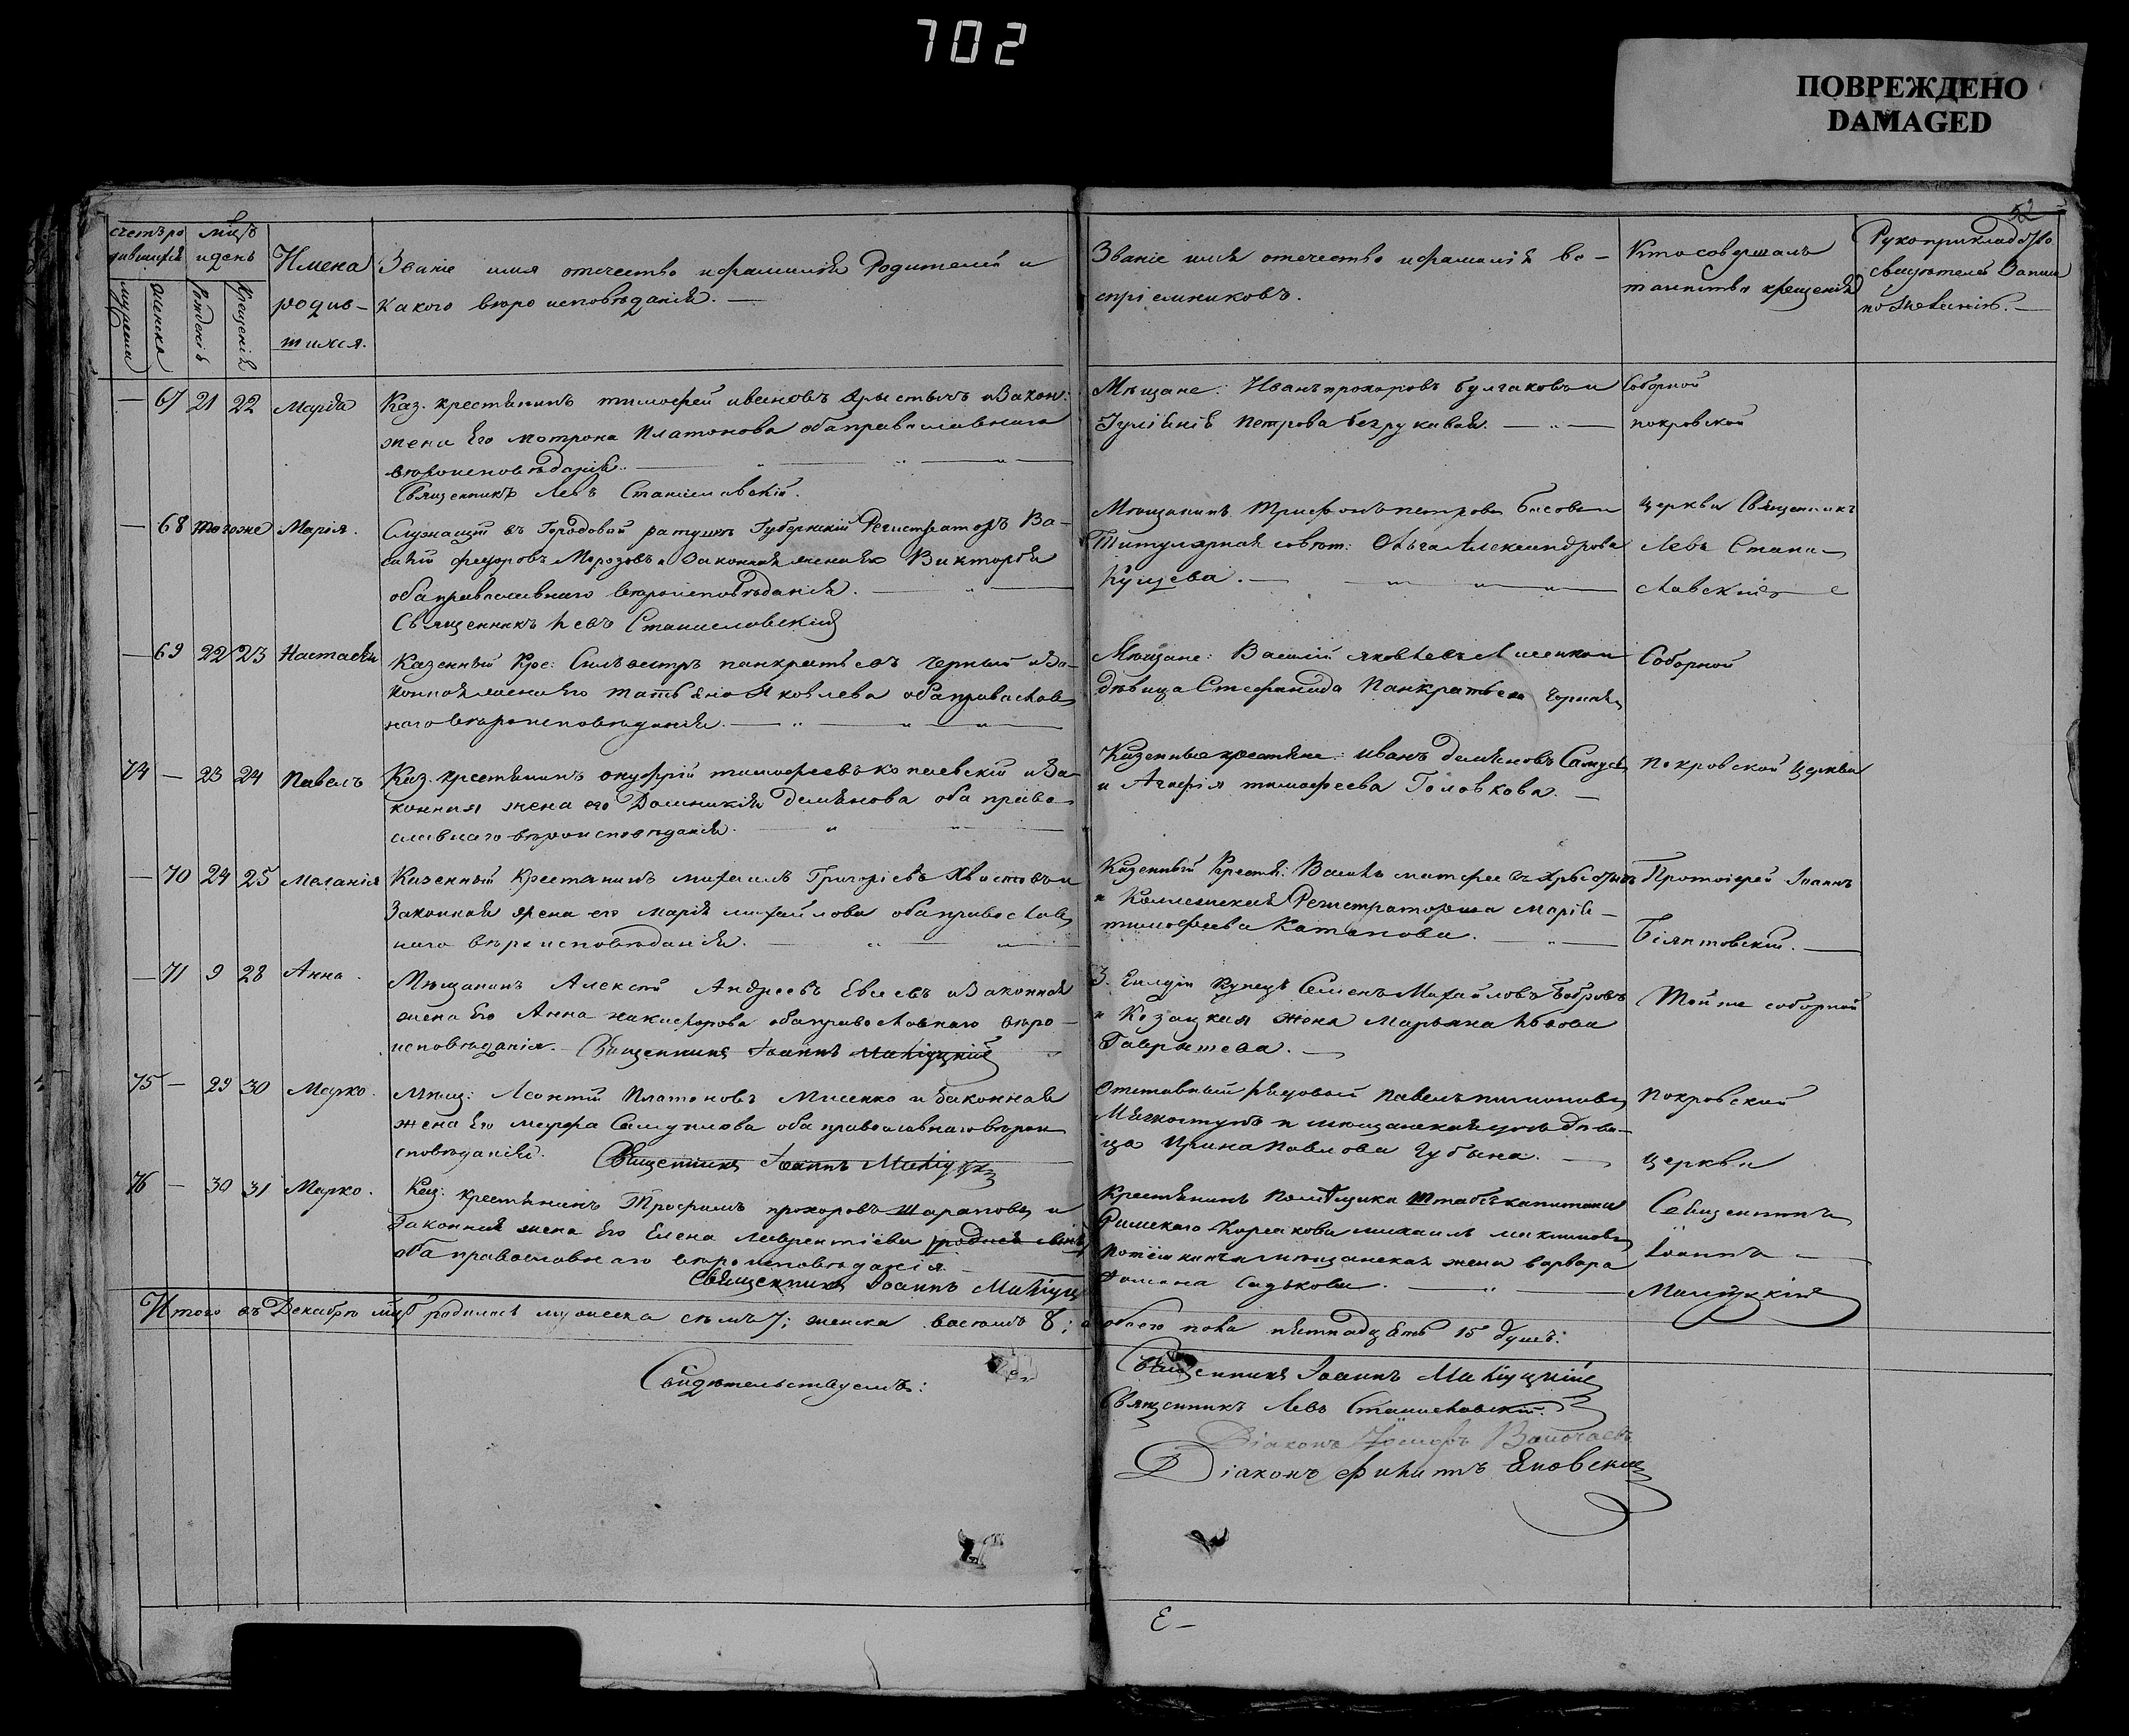 702
ПОВРЕЖДЕНО
DAMAGED
52
счетъ ро
дившихся
мцъ
и день
мужеска
женска
рожденія
крещенія
Имена
родив-
шихся.
Званіе имя отечество и фамилія Родителей и
какого вероисповѣданія.
Званіе имя отечество и фамилія во-
спріемниковъ.
Кто совершалъ
таинство крещенія
Рукоприкладство
свидѣтелей записи
по желанію.
— 67 21 22 Марія
Каз. крестьянинъ тимофей ивановъ и Закон:
жена Его мотрона Платонова оба православнаго
вѣроисповѣданія.
Священникъ Левъ Станиславскій.
Мѣщане: Иванъ прохоровъ булгаковъ и
петрова безрукавая.
Соборной
покровской
— 68 тогоже Марія.
Служащій въ Городовой ратушѣ Губернскій Регистраторъ Ва-
силій федоровъ Морозовъ и Законная жена Викторія
оба православнаго вѣроисповѣданія.
Священникъ Левъ Станиславскій
Мѣщанинъ Трифонъ петровъ басовъ и
Титулярная совѣт: Ольга Александрова
церкви Священникъ
Левъ Стани-
славскій
— 69 22 23 Настасія
Казенный Кре: Сильвестръ панкратьевъ черный и За-
конная жена Его татьяна Яковлева оба православ
наго вѣроисповѣданія.
Мѣщане: Василій яковлевъ Лисенко и
дѣвица Стефанида Панкратьева Черная
Соборной
74 — 23 24 Павелъ
Каз. крестьянинъ онуфрій тимофеевъ и За-
конная жена его Домникія демьянова оба право-
славнаго вѣроисповѣданія.
Казенные крестяне: иванъ демьяновъ
и Агафія тимофеева Головкова.
покровской церкви
— 70 24 25 Меланія
Казенный Крестянинъ михаилъ Григоріевъ Хвостовъ и
Законная жена его марія михайлова оба православ
наго вѣроисповѣданія.
Казенный Крестя: матфеевъ
и Регистраторша марія
тимофеева Катанова.
Протоіерей Іоаннъ
— 71 9 28 Анна.
Мѣщанинъ Алексѣй Андреевъ Евсеевъ и Законная
жена Его Анна никифорова оба православнаго вѣро-
исповѣданія. Священникъ Іоаннъ
3. Гилдіи Купецъ Семенъ Михайловъ Бобровъ
и Козацкая жена Марьяна
Той же соборной
75 — 29 30 Марко.
Мѣщ: Леонтій Платоновъ и Законная
жена Его марфа Самуилова оба православнаго вѣрои
сповѣданія. Священникъ Іоаннъ
отставный рядовый павелъ
и мѣщанская дочь дѣви-
ца Ирина Павлова Губина.
Покровской
церкви
76 — 30 31 Марко.
Каз. крестьянинъ Трофимъ прохоровъ и
Законная жена Его Елена Лаврентіева
оба православнаго вѣроисповѣданія.
Священникъ Іоаннъ
Крестянинъ Помѣщика штабскапитана
Римскаго Корсакова михаилъ максимовъ
и мѣщанская жена варвара
фомина садькова.
Священникъ
Іоаннъ
Итого въ Декабрѣ мцѣ родилось мужеска семъ 7; женска восемъ 8; а обоего пола пятнадцать 15 душъ:
Свидѣтельствуемъ:
Священникъ Іоаннъ
Священникъ Левъ Станиславскій.
Діаконъ
Діаконъ Филиппъ Яновскій